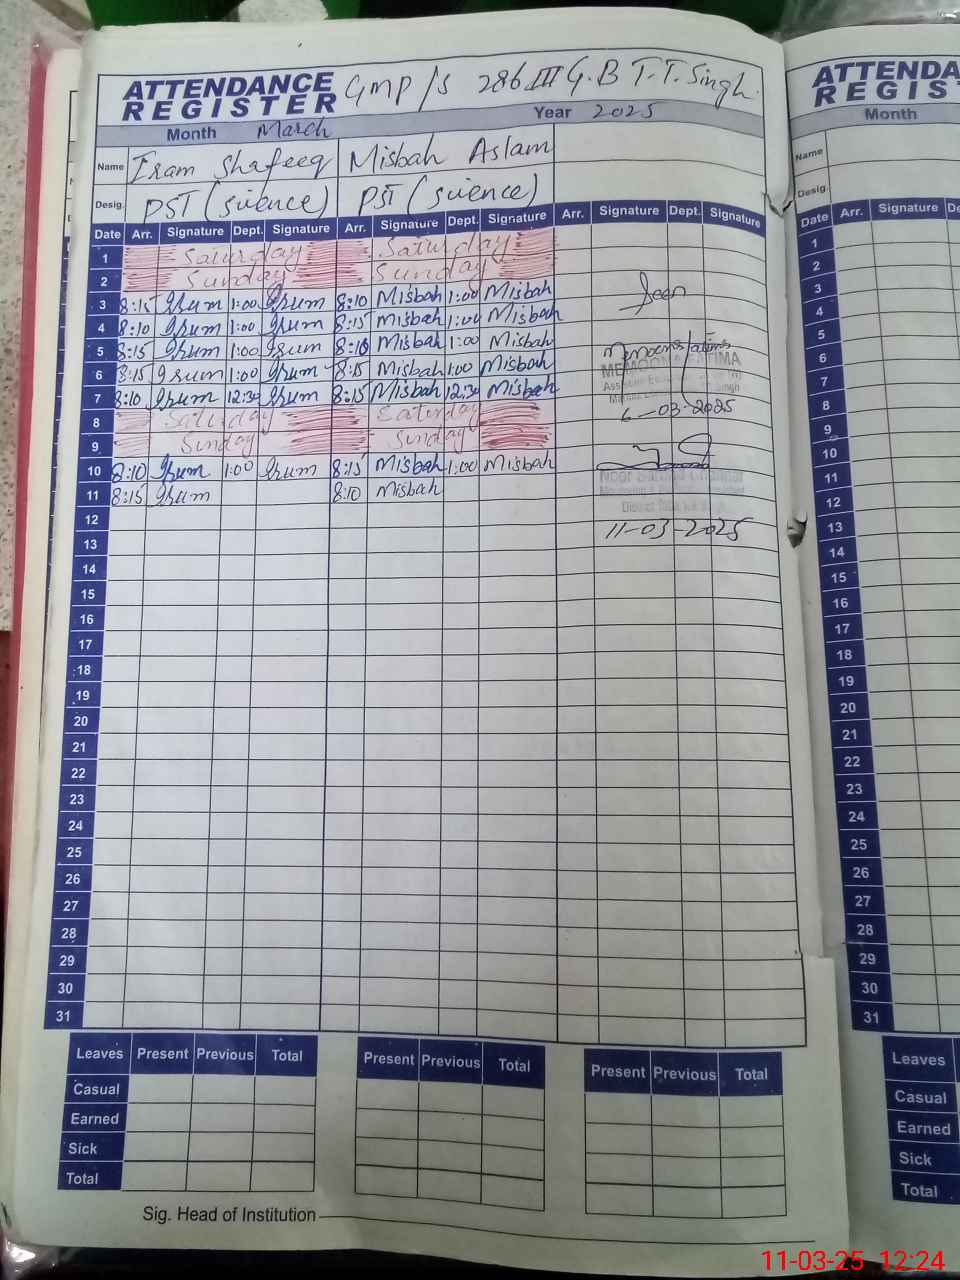 ATTENDANCE REGISTER GMP/S 286 III G.B T.T.Singh.
Month March Year 2025
Name Iram Shafeeq Misbah Aslam
Desig. PST (science) PST (science)
Date Arr. Signature Dept. Signature Arr. Signature Dept. Signature Arr. Signature Dept. Signature
1 Saturday Saturday
2 Sunday Sunday
3 8:15 Irum 1:00 Irum 8:10 Misbah 1:00 Misbah
Seen
4 8:10 Irum 1:00 Irum 8:15 Misbah 1:00 Misbah
5 8:15 Irum 1:00 Irum 8:10 Misbah 1:00 Misbah
Memoona Fatima
6 8:15 Irum 1:00 Irum 8:15 Misbah 1:00 Misbah
MEMOONA FATIMA
7 8:10 Irum 12:30 Irum 8:15 Misbah 12:30 Misbah
8 Saturday Saturday
6-03-2025
9 Sunday Sunday
10 8:10 Irum 1:00 Irum 8:15 Misbah 1:00 Misbah
11 8:15 Irum 8:10 Misbah
12
11-03-2025
13
14
15
16
17
18
19
20
21
22
23
24
25
26
27
28
29
30
31
Leaves Present Previous Total Present Previous Total Present Previous Total
Casual
Earned
Sick
Total
Sig. Head of Institution
ATTENDA
REGIST
Month
Name
Desig.
Date Arr. Signature De
1
2
3
4
5
6
7
8
9
10
11
12
13
14
15
16
17
18
19
20
21
22
23
24
25
26
27
28
29
30
31
Leaves
Casual
Earned
Sick
Total
11-03-25 12:24